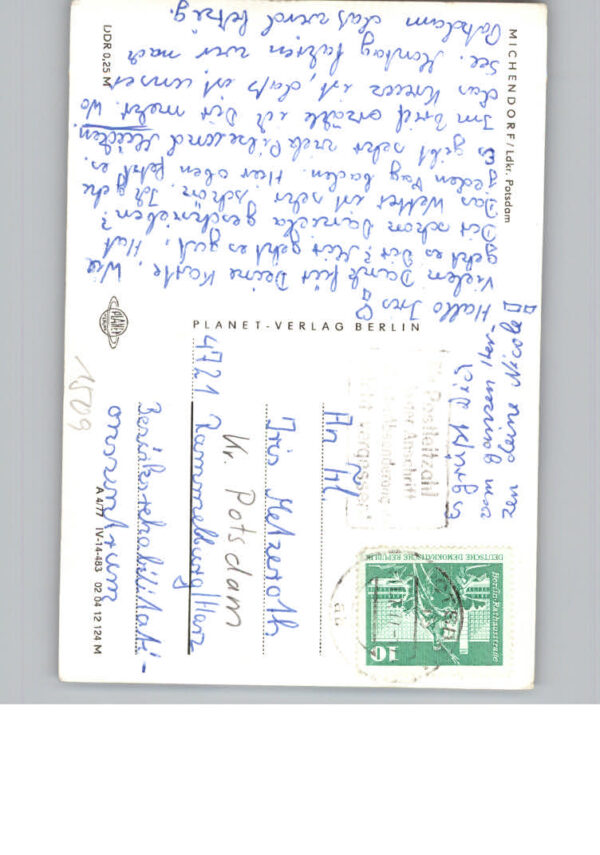 MICHENDORF / Ldkr. Potsdam
Hallo Iris
Vielen Dank für Deine Karte. Wie
geht es Dir? Mir geht es gut. Hat
Dir schon Daniela geschrieben?
Das Wetter ist sehr schön. Ich gehe
jeden Tag baden. Hier oben fehlt es.
Es gibt sehr viele Pilze und Mücken.
Im Brief erzähle ich Dir mehr. Wo
das Kreuz ist, daß ist unser
See. Montag fahren wir nach
Potsdam das wird fetzig.
Es grüßt Dich
zen deine Nicole
DDR 0,25 M
PLANET-VERLAG BERLIN
PLANET
VERLAG
A 4/77 IV-14-483 02 04 12 124 M
1509
Postleitzahl
10
Berlin-Rathausstraße
DEUTSCHE DEMOKRATISCHE REPUBLIK
An Frl.
Iris Metzeroth
Kr. Potsdam
4721 Rammelburg/Harz
Berufsrehabilitati-
onszentrum